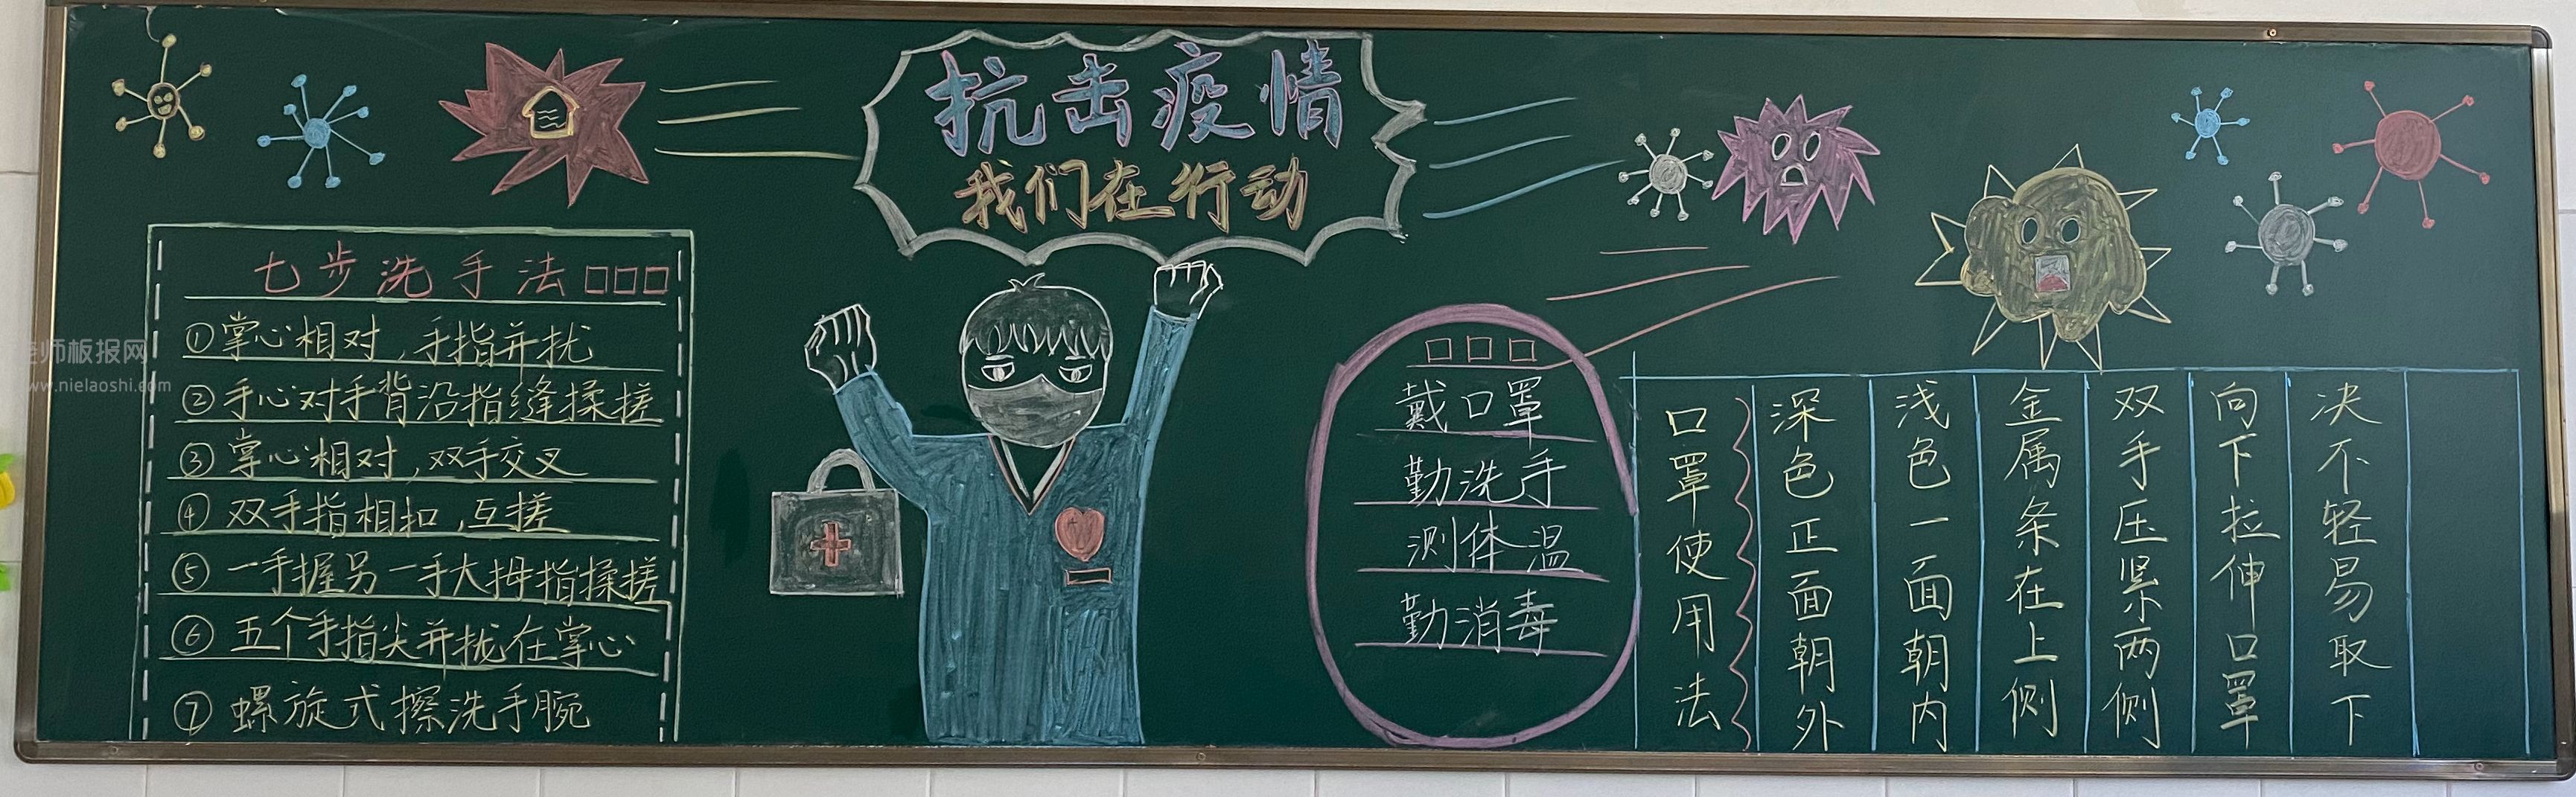 抗击疫情
我们在行动
七步洗手法□□□
①掌心相对,手指并拢
②手心对手背沿指缝揉搓
③掌心相对,双手交叉
④双手指相扣,互搓
⑤一手握另一手大拇指揉搓
⑥五个手指尖并拢在掌心
⑦螺旋式擦洗手腕
师板报网
www.nielaoshi.com
□□□
戴口罩
勤洗手
测体温
勤消毒
口罩使用法
深色正面朝外
浅色一面朝内
金属条在上侧
双手压紧两侧
向下拉伸口罩
决不轻易取下